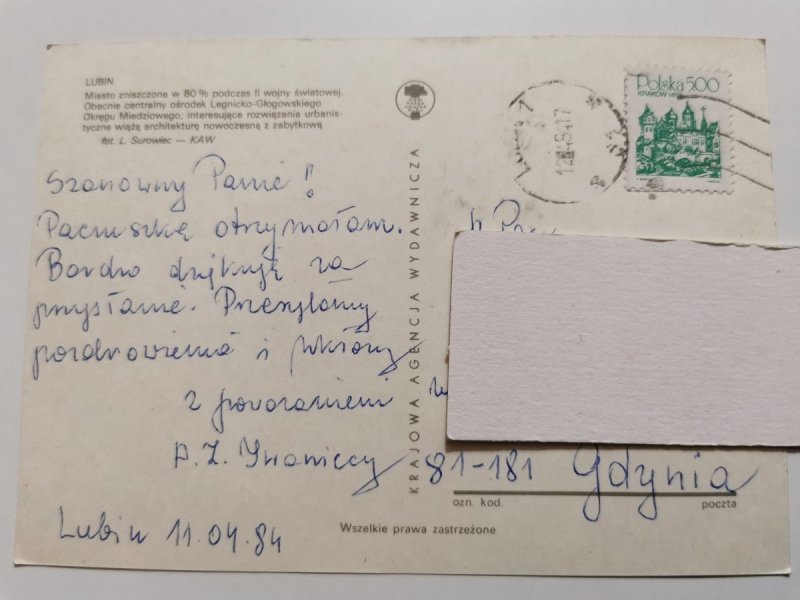 LUBIN
Miasto zniszczone w 80% podczas II wojny światowej.
Obecnie centralny ośrodek Legnicko-Głogowskiego
Okręgu Miedziowego; interesujące rozwiązania urbanis-
tyczne wiążą architekturę nowoczesną z zabytkową
fot. L. Surowiec — KAW
Szanowny Panie!
Paczuszkę otrzymałam.
Bardzo dziękuję za
przysłanie. Przesyłamy
pozdrowienia i ukłony
z poważaniem
A. Z. Iwaniccy
Lubin 11.04.84
KRAJOWA AGENCJA WYDAWNICZA
Polska 500
KRAKÓW 1493
81-181 Gdynia
ozn. kod. poczta
Wszelkie prawa zastrzeżone